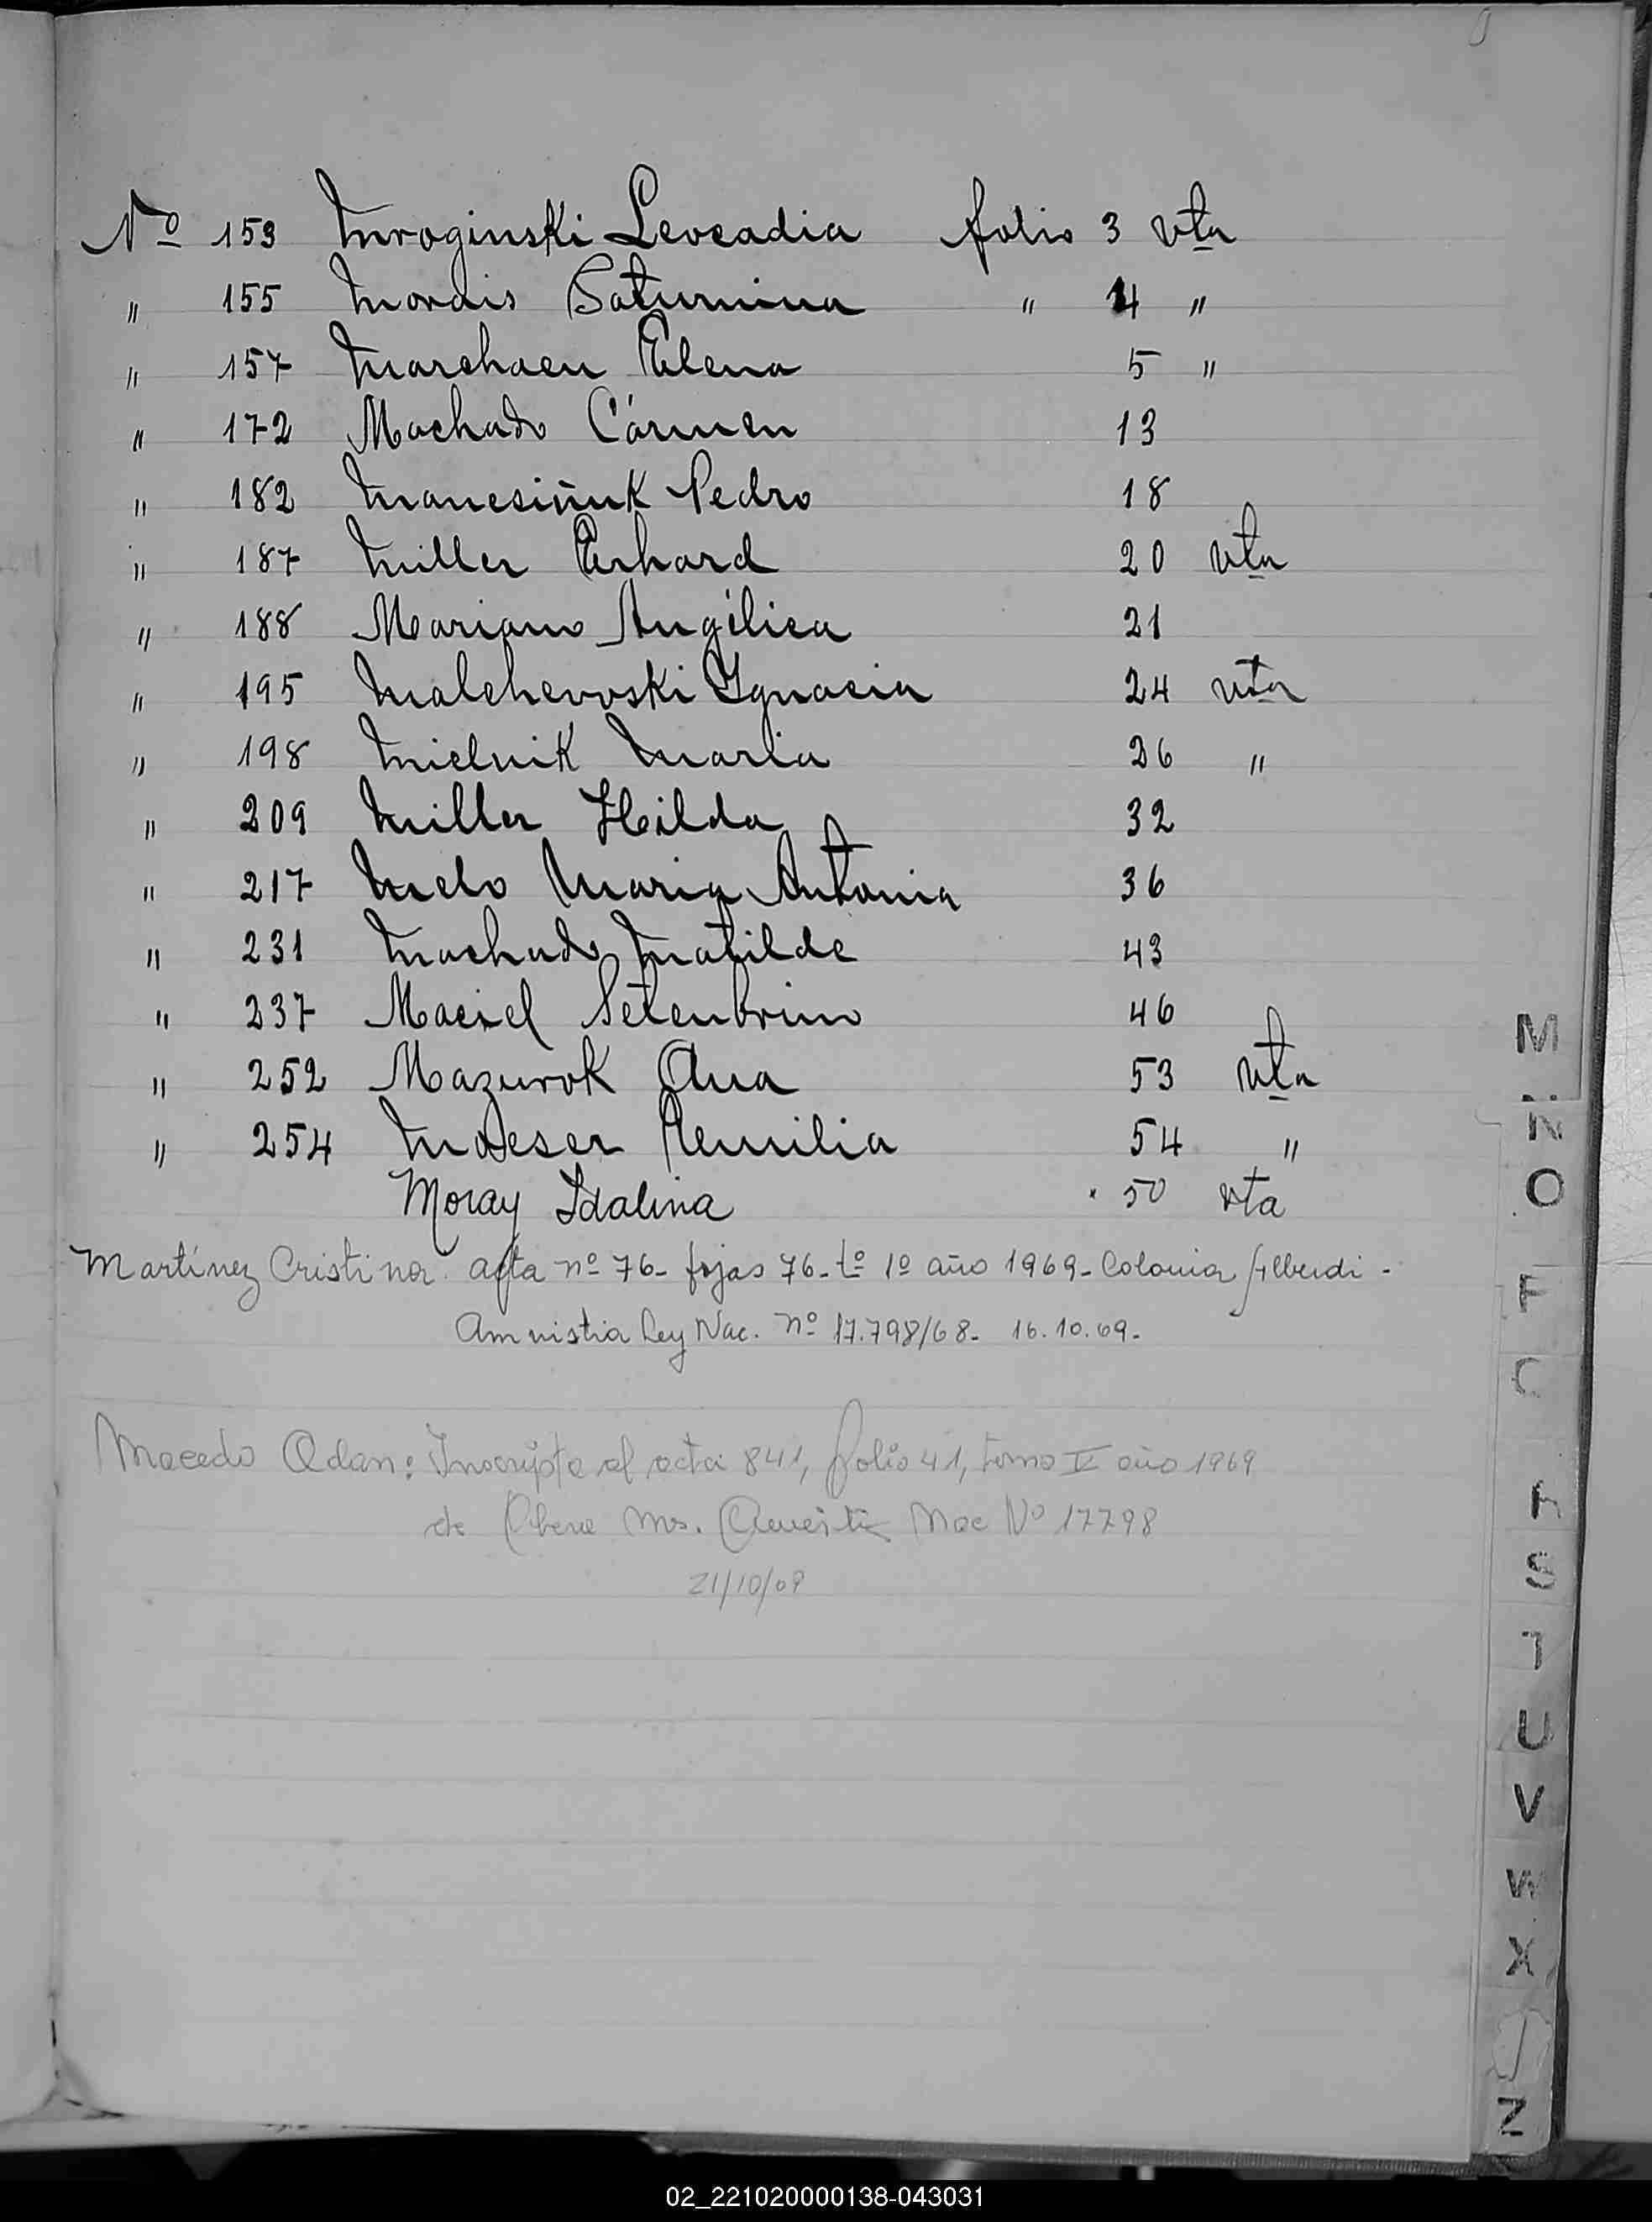 Nº 153 Mroginski Leocadia folio 3 vta
" 155 Morais Saturnina " 4 "
" 157 Marchaen Elena 5 "
" 172 Machado Cármen 13
" 182 Manesiñuk Pedro 18
" 187 Miller Erhard 20 vta
" 188 Mariano Angélica 21
" 195 Malchevoski Ignacia 24 vta
" 198 Mielnik Maria 26 "
" 209 Miller Hilda 32
" 217 Melo Maria Antonia 36
" 231 Machado Matilde 43
" 237 Maciel Setenbrino 46
" 252 Mazurok Ana 53 vta
" 254 Moeser Emilia 54 "
Moray Idalina " 50 vta
Martínez Cristina acta nº 76- fojas 76- tº 1º año 1969- Colonia Alberdi -
Amnistia Ley Nac. nº 17.798/68- 16.10.69-
Macedo Adan: Inscripto al acta 841, folio 41, tomo V año 1969
de Obera Ms. Nac Nº 17798
21/10/69
M
N
O
F
C
R
S
T
U
V
W
X
Z
02_221020000138-043031